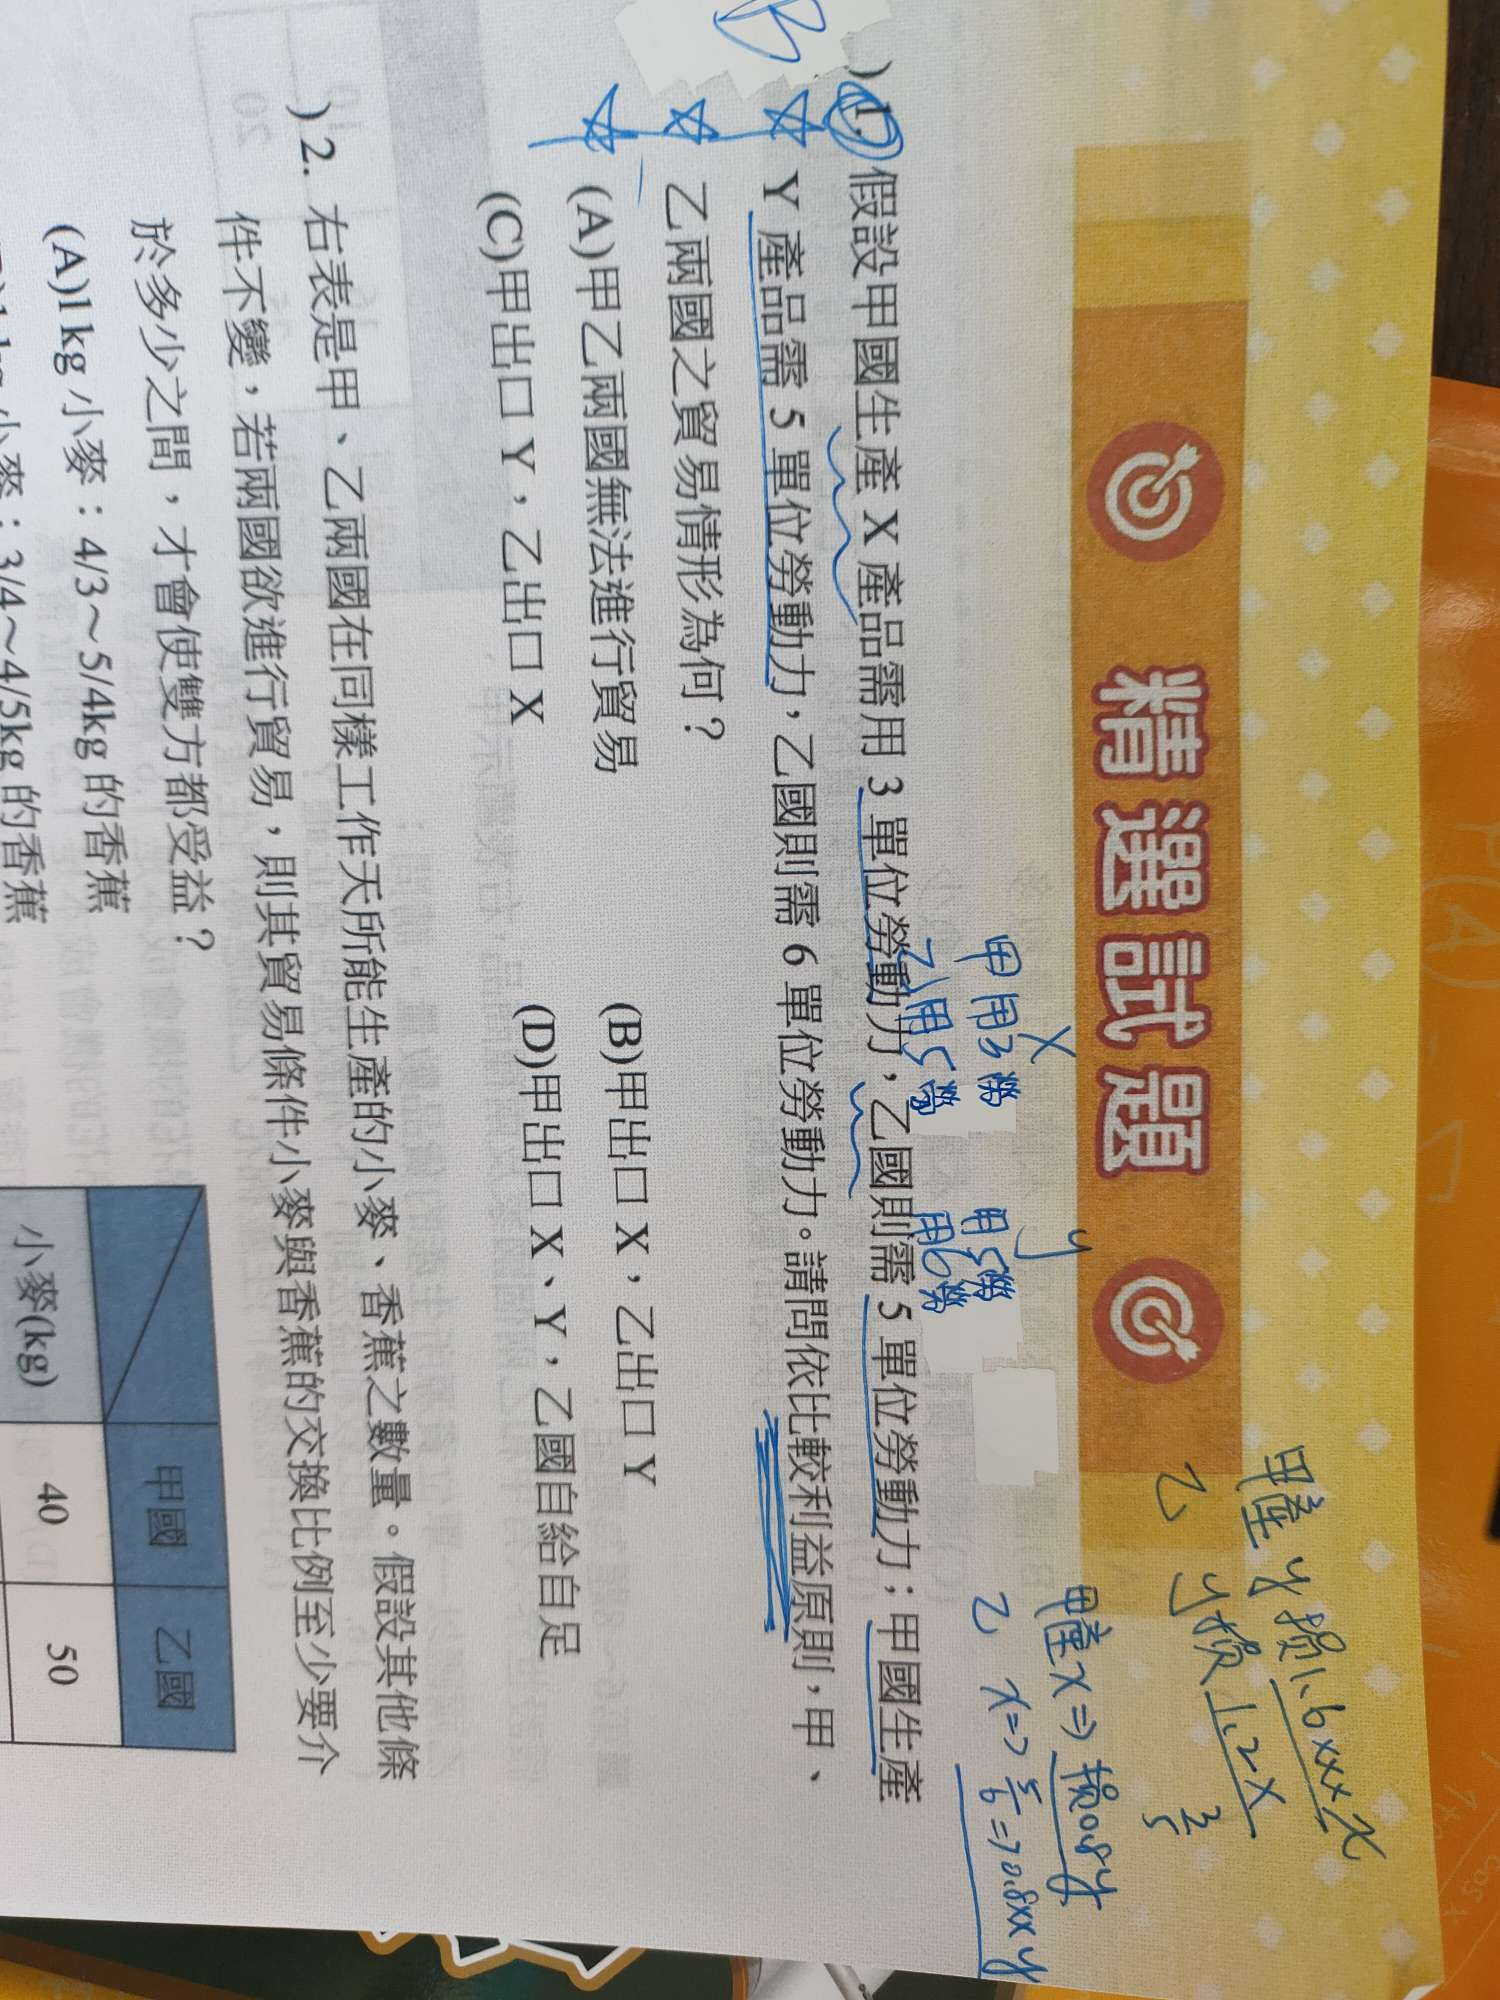 精選試題
甲產y損1.6xxx x
乙 y損1.2x
3/5
甲產x⇒損0.8y
乙 x⇒5/6⇒0.8xx y
x y
甲用3勞 用5勞
乙用5勞 用6勞
B
)1. 假設甲國生產 X 產品需用 3 單位勞動力，乙國則需 5 單位勞動力；甲國生產
Y 產品需 5 單位勞動力，乙國則需 6 單位勞動力。請問依比較利益原則，甲、
乙兩國之貿易情形為何？
(A)甲乙兩國無法進行貿易 (B)甲出口 X，乙出口 Y
(C)甲出口 Y，乙出口 X (D)甲出口 X、Y，乙國自給自足
)2. 右表是甲、乙兩國在同樣工作天所能生產的小麥、香蕉之數量。假設其他條
件不變，若兩國欲進行貿易，則其貿易條件小麥與香蕉的交換比例至少要介
於多少之間，才會使雙方都受益？
(A)1 kg 小麥：4/3～5/4kg 的香蕉
kg 小麥：3/4～4/5kg 的香蕉
甲國 乙國
小麥(kg) 40 50